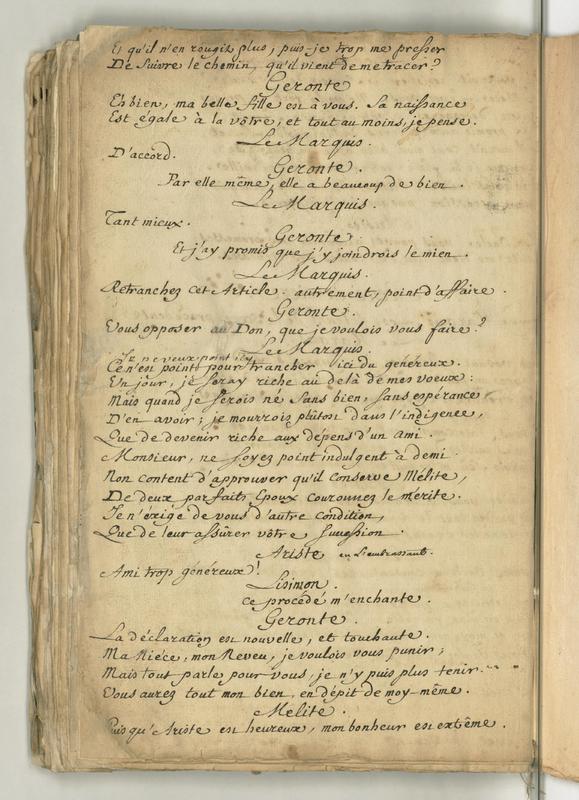 Et qu'il n'en rougit plus, puis-je trop me presser
De Suivre le chemin, qu'il vient de me tracer?
Geronte
Eh bien, ma belle fille est à vous. Sa naissance
Est égale à la vôtre, et tout au moins, je pense.
Le Marquis.
D'accord.
Geronte.
Par elle même, elle a beaucoup de bien.
Le Marquis.
Tant mieux.
Geronte.
Et j'ay promis que j'y joindrois le mien.
Le Marquis.
Retranchez cet Article. autrement, point d'affaire.
Geronte.
Vous opposer au Don, que je voulois vous faire?
Le Marquis.
Je ne veux point icy
Ce n'est point pour trancher ici du généreux.
Un jour, je seray riche au delà de mes voeux:
Mais quand je serois né Sans bien, Sans espérance
D'en avoir; je mourrois plûtost dans l'indigence,
Que de devenir riche aux dépens d'un ami.
Monsieur, ne soyez point indulgent à demi.
Non content d'approuver qu'il conserve Mélite,
De deux parfaits Epoux couronnez le mérite.
Je n'éxige de vous d'autre condition,
Que de leur assûrer vôtre Succession.
Ariste en L'embrassant.
Ami trop généreux!
Lisimon.
Ce procédé m'enchante.
Geronte.
La déclaration est nouvelle, et touchante.
Ma Niéce, mon Neveu, je voulois vous punir;
Mais tout parle pour vous, je n'y puis plus tenir.
Vous aurez tout mon bien, en dépit de moy-même.
Mélite.
Puisqu'Ariste est heureux, mon bonheur est extême.